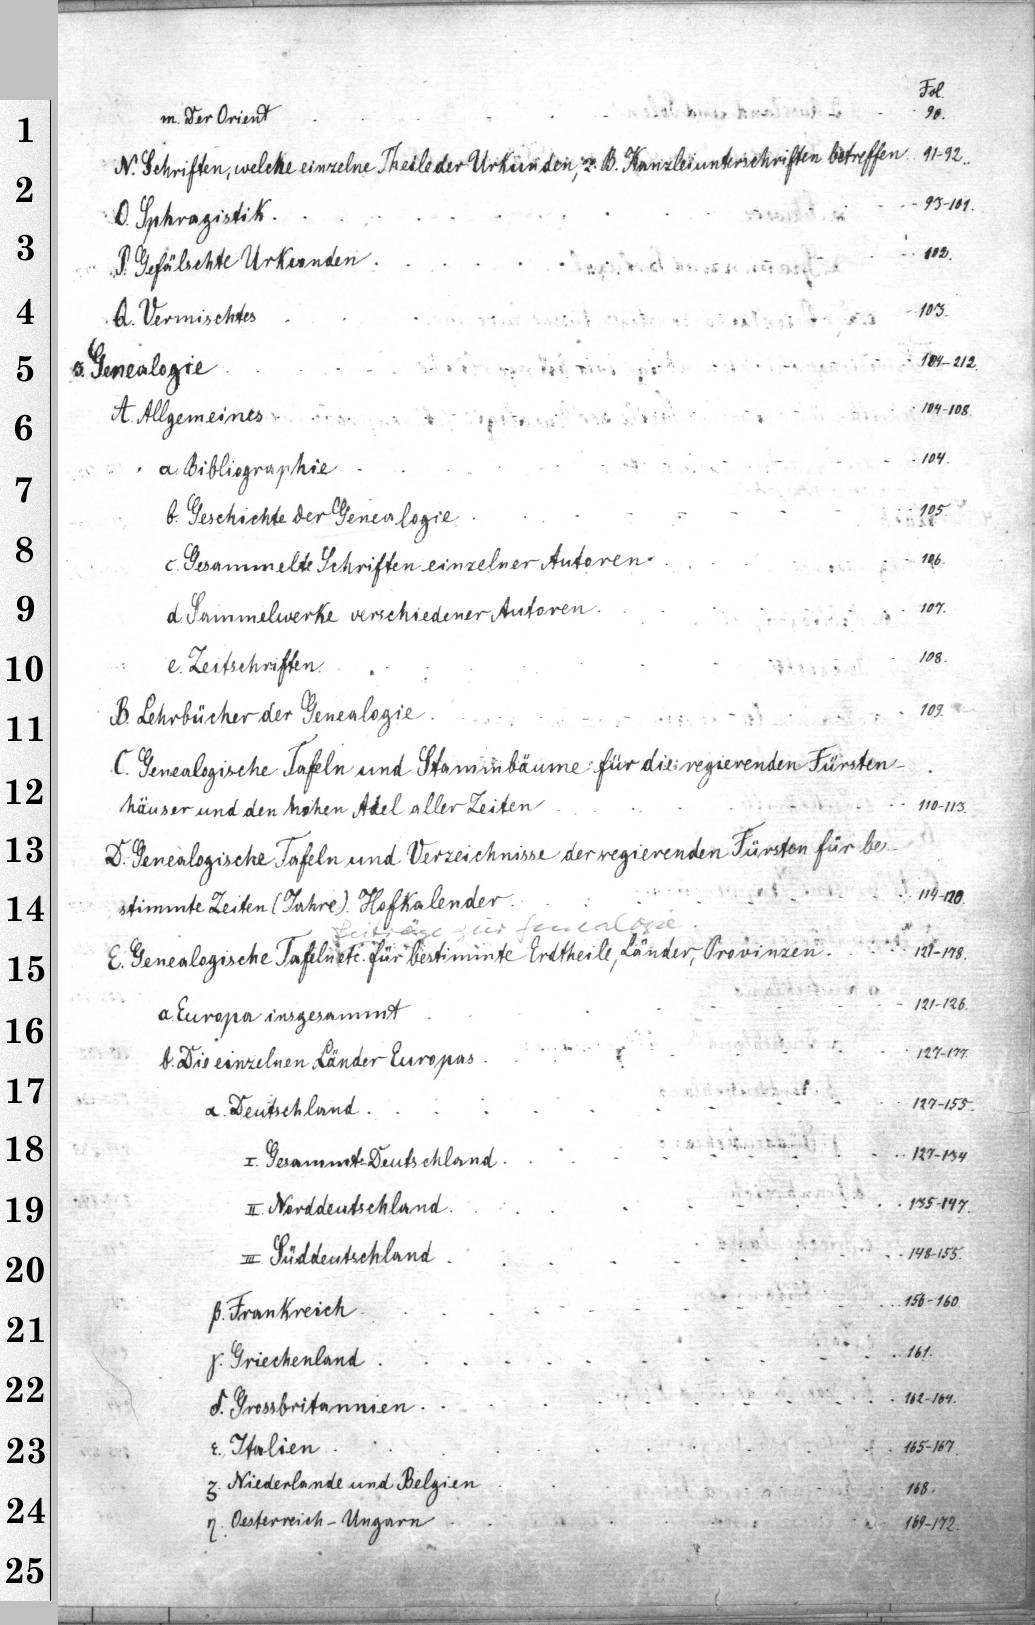 Fol.
1 m. Der Orient 90.
N. Schriften, welche einzelne Theile der Urkunden, z. B. Kanzleiunterschriften betreffen 91-92.
2 O. Sphragistik. 93-101.
3 P. Gefälschte Urkunden. 102.
4 Q. Vermischtes 103.
5 3. Genealogie 104-212.
6 A. Allgemeines 104-108.
7 a. Bibliographie 104.
b. Geschichte der Genealogie 105
8 c. Gesammelte Schriften einzelner Autoren 106.
9 d. Sammelwerke verschiedener Autoren. 107.
10 e. Zeitschriften. 108.
11 B. Lehrbücher der Genealogie. 109.
C. Genealogische Tafeln und Stammbäume für die regierenden Fürsten-
12 häuser und den hohen Adel aller Zeiten 110-113.
13 D. Genealogische Tafeln und Verzeichnisse der regierenden Fürsten für be-
14 stimmte Zeiten (Jahre). Hofkalender. 114-120.
Beiträge zur Genealogie.
15 E. Genealogische Tafeln etc. für bestimmte Erdtheile, Länder, Provinzen. 121-178.
16 a. Europa insgesammt 121-126.
b. Die einzelnen Länder Europas. 127-177.
17 α. Deutschland. 127-155.
18 I. Gesammt-Deutschland. 127-134
19 II. Norddeutschland. 135-147.
20 III. Süddeutschland. 148-155.
21 β. Frankreich. 156-160.
γ. Griechenland. 161.
22 δ. Grossbritannien. 162-164.
23 ε. Italien. 165-167
24 ζ. Niederlande und Belgien 168.
η. Oesterreich-Ungarn 169-172.
25